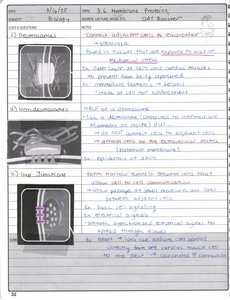 DATE 5/16/25 TOPIC 3.6 Membrane Proteins
SUBJECT Biology SOURCE (LECTURE, BOOK, ETC) OAT Booster
CUES/QUESTIONS
NOTES
3) Desmosomes
- connect adjacent cells to each other
→ found in tissues that are exposed to a lot of
mechanical stress
Ex: outer layer of skin and cardiac muscles
to prevent from being separated
→ intermediate filaments = keratin
inside of cell for reinforcement
4) Hemidesmosomes
- HALF of a desmosome
- like a desmosome (connected to intermediate
filaments on inside) BUT
→ do NOT connect cells to adjacent cells
→ attach cells to the extracellular matrix
(basement membrane)
Ex: epidermis of skin
5) Gap Junctions
- form narrow tunnels between cells that
allow cell-to-cell communication
→ allow passage of small molecules and ions
between adjacent cells
Ex: basic cell signaling
Ex: electrical signals
- smooth, synchronized electrical signal to
spread through tissues
Ex: heart → ions like sodium can spread
directly from one cardiac muscle cell
to the next → coordinated
32